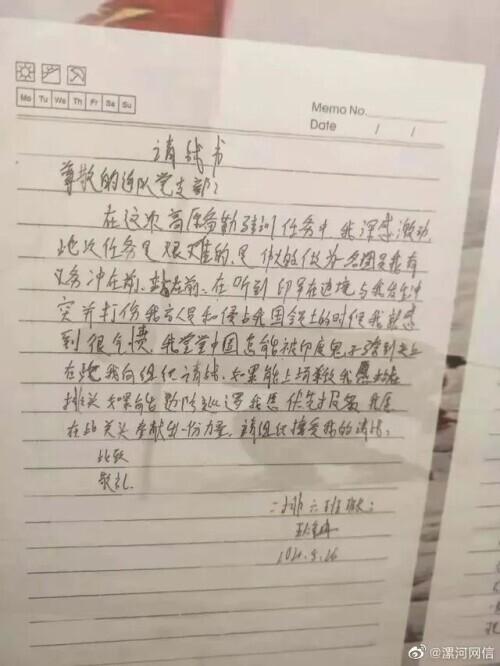 Mo Tu We Th Fr Sa Su
Memo No.
Date / /
请战书
尊敬的连队党支部：
在这次高原备勤驻训任务中我深感激动，
此次任务是艰难的、是伟大的做为 我有
义务冲在前、站在前、在听到印军在边境与我发生冲
突并打伤我方人员和侵占我国领土的时候我感
到很气愤，我堂堂中国怎能被印度鬼
在此我向组织请战，如果能上场杀敌我愿站在
排头 如果 我愿
在此关头奉献出一份力量，请组织接受我的请战：
此致
敬礼
二排六班
@漯河网信